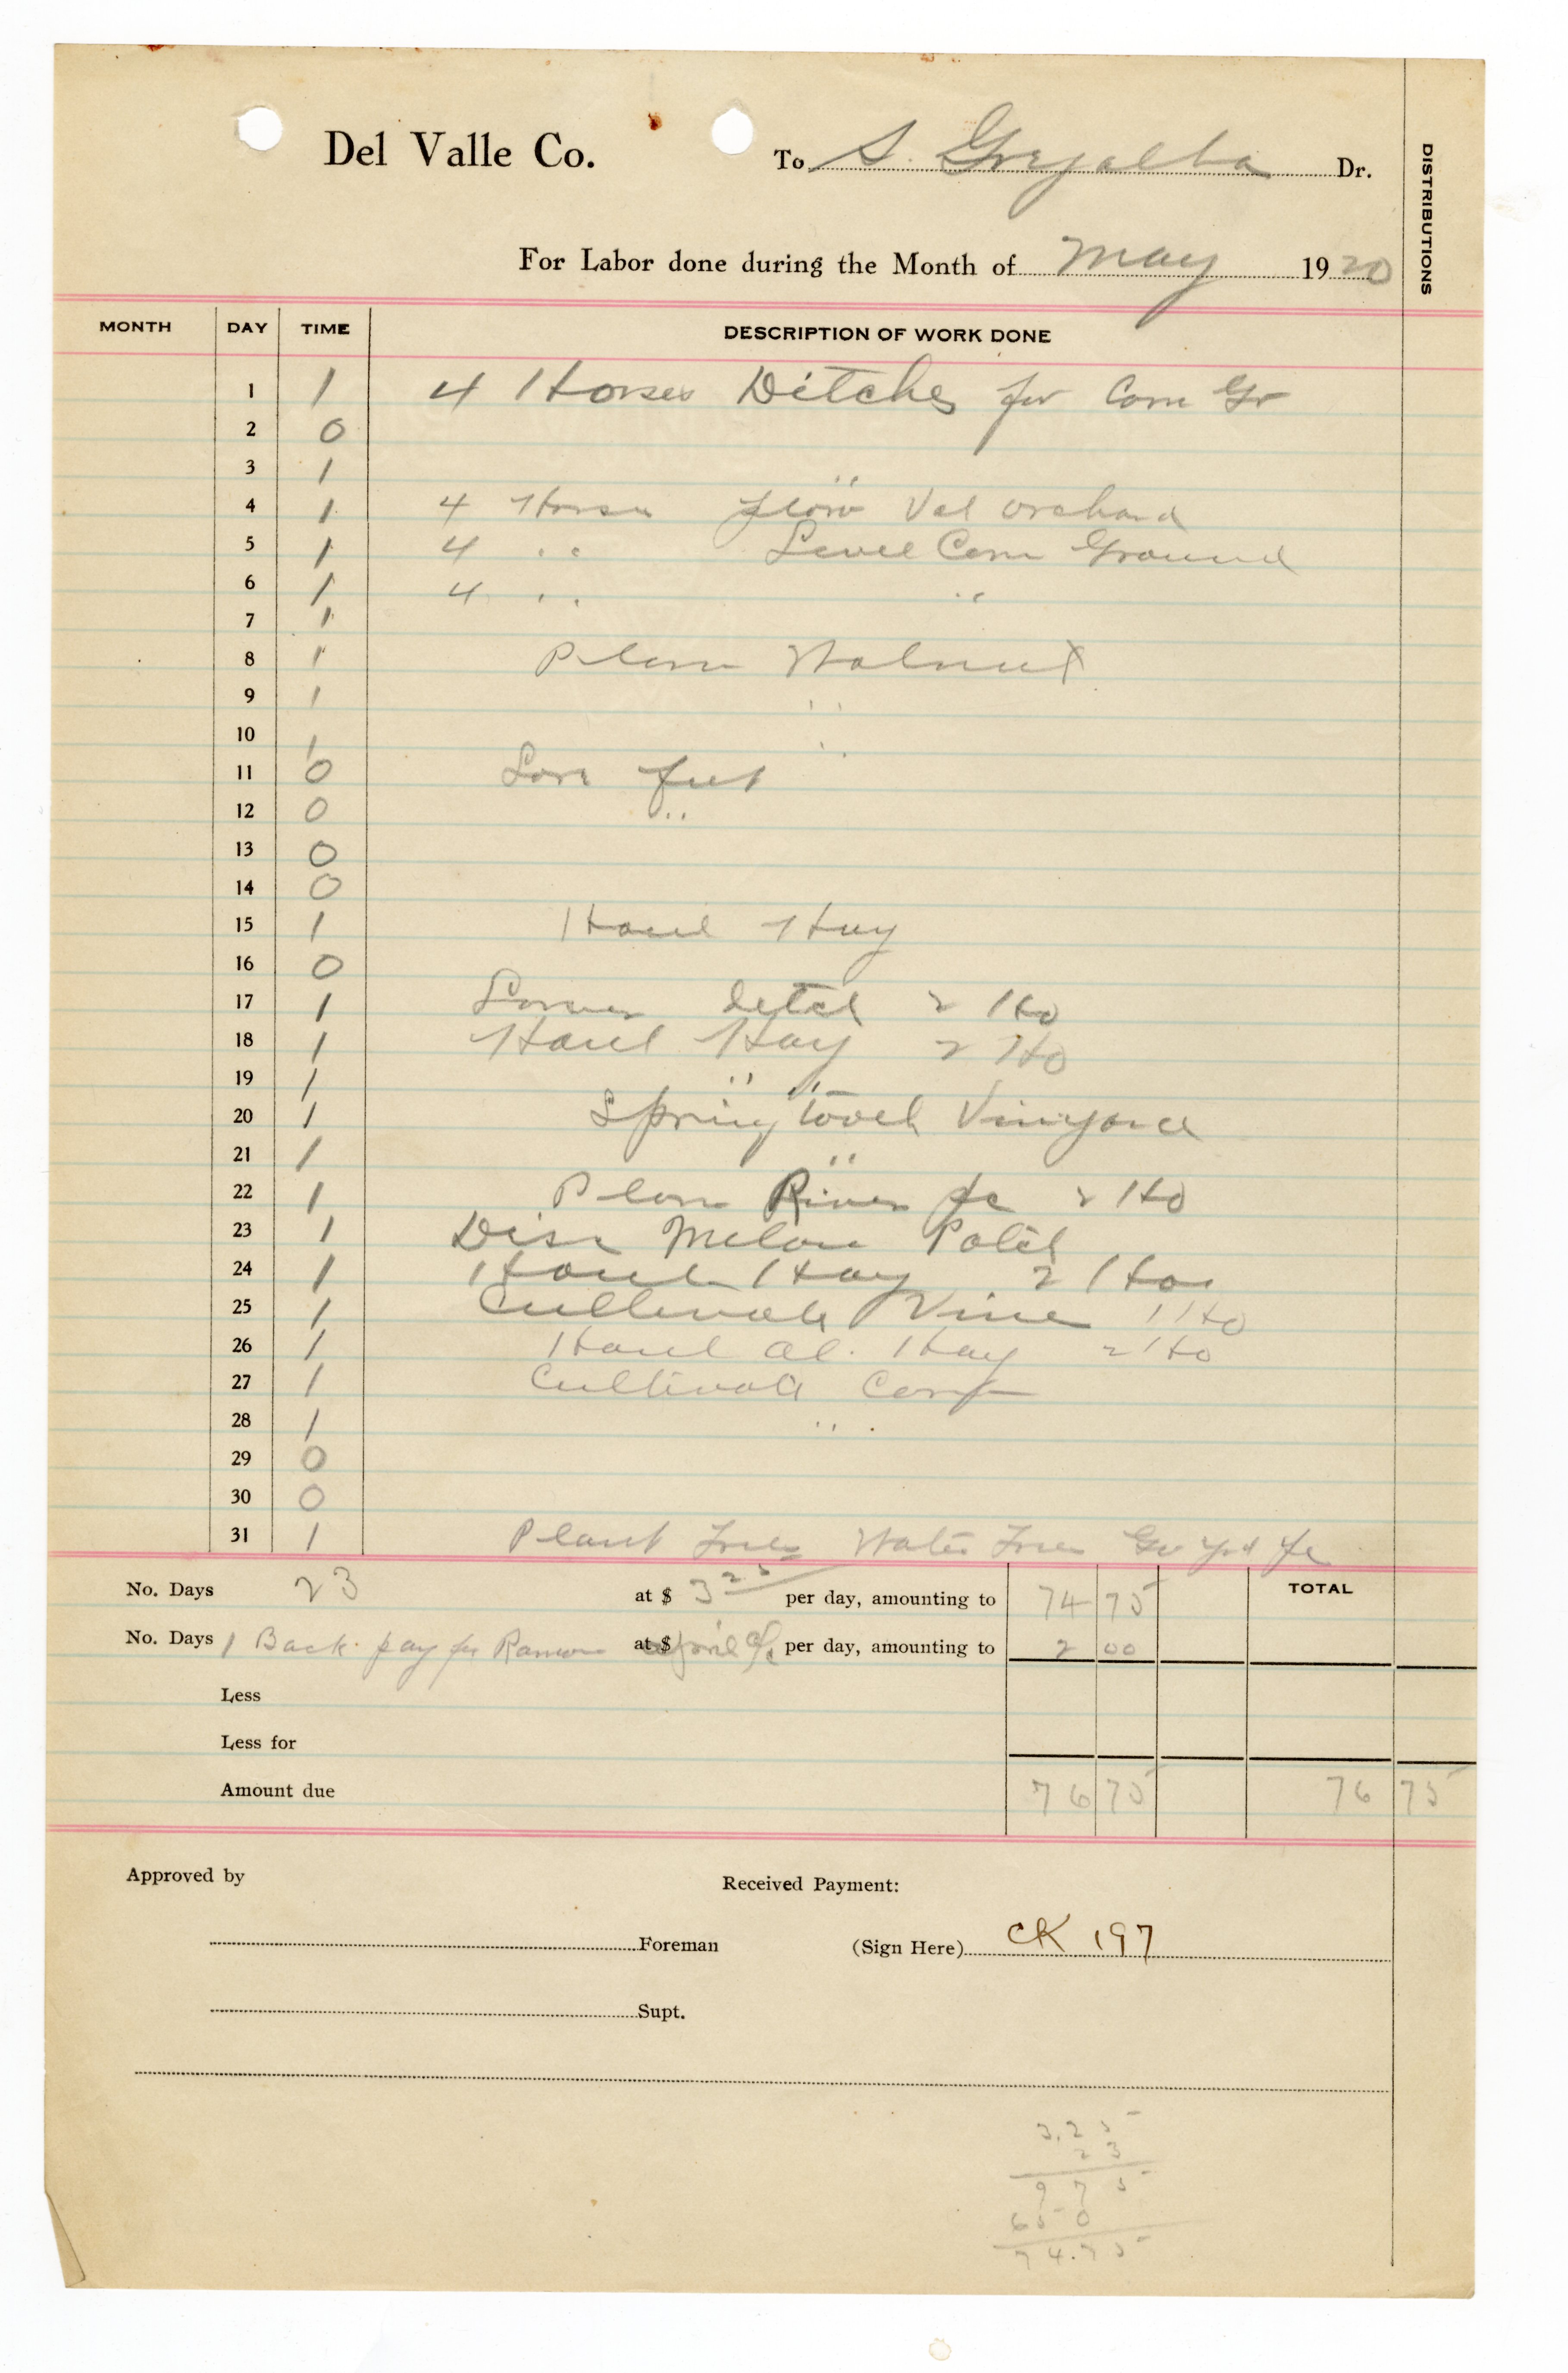 Del Valle Co. To S. Grejalba Dr.
DISTRIBUTIONS
For Labor done during the Month of May 1920
MONTH DAY TIME DESCRIPTION OF WORK DONE
1 1 4 Horses Ditches for Corn Gr
2 0
3 1 "
4 1 4 Horses plow Val orchard
5 1 4 " Level Corn Ground
6 1 4 " "
7 1
8 1 Plow Walnut
9 1 "
10 1 "
11 0 Sore feet
12 0 "
13 0
14 0
15 1 Haul Hay
16 0
17 1 ditch 2 Ho
18 1 Haul Hay 2 Ho
19 1 " "
20 1 Spring Vinyard
21 1 "
22 1 Plow River 2 Ho
23 1 Disc Melon Patch
24 1 Haul Hay 2 Hos
25 1 Cultivate Vine 1 Ho
26 1 Haul al. Hay 2 Ho
27 1 Cultivate Corn
28 1 "
29 0
30 0
31 1 Plant Trees Water Trees
No. Days 23 at $ 3 25 per day, amounting to 74 75 TOTAL
No. Days 1 Back pay for Ramon at $ April a/c per day, amounting to 2 00
Less
Less for
Amount due 76 75 76 75
Approved by Received Payment:
Foreman (Sign Here) CK 197
Supt.
3.25
23
975
650
74.75